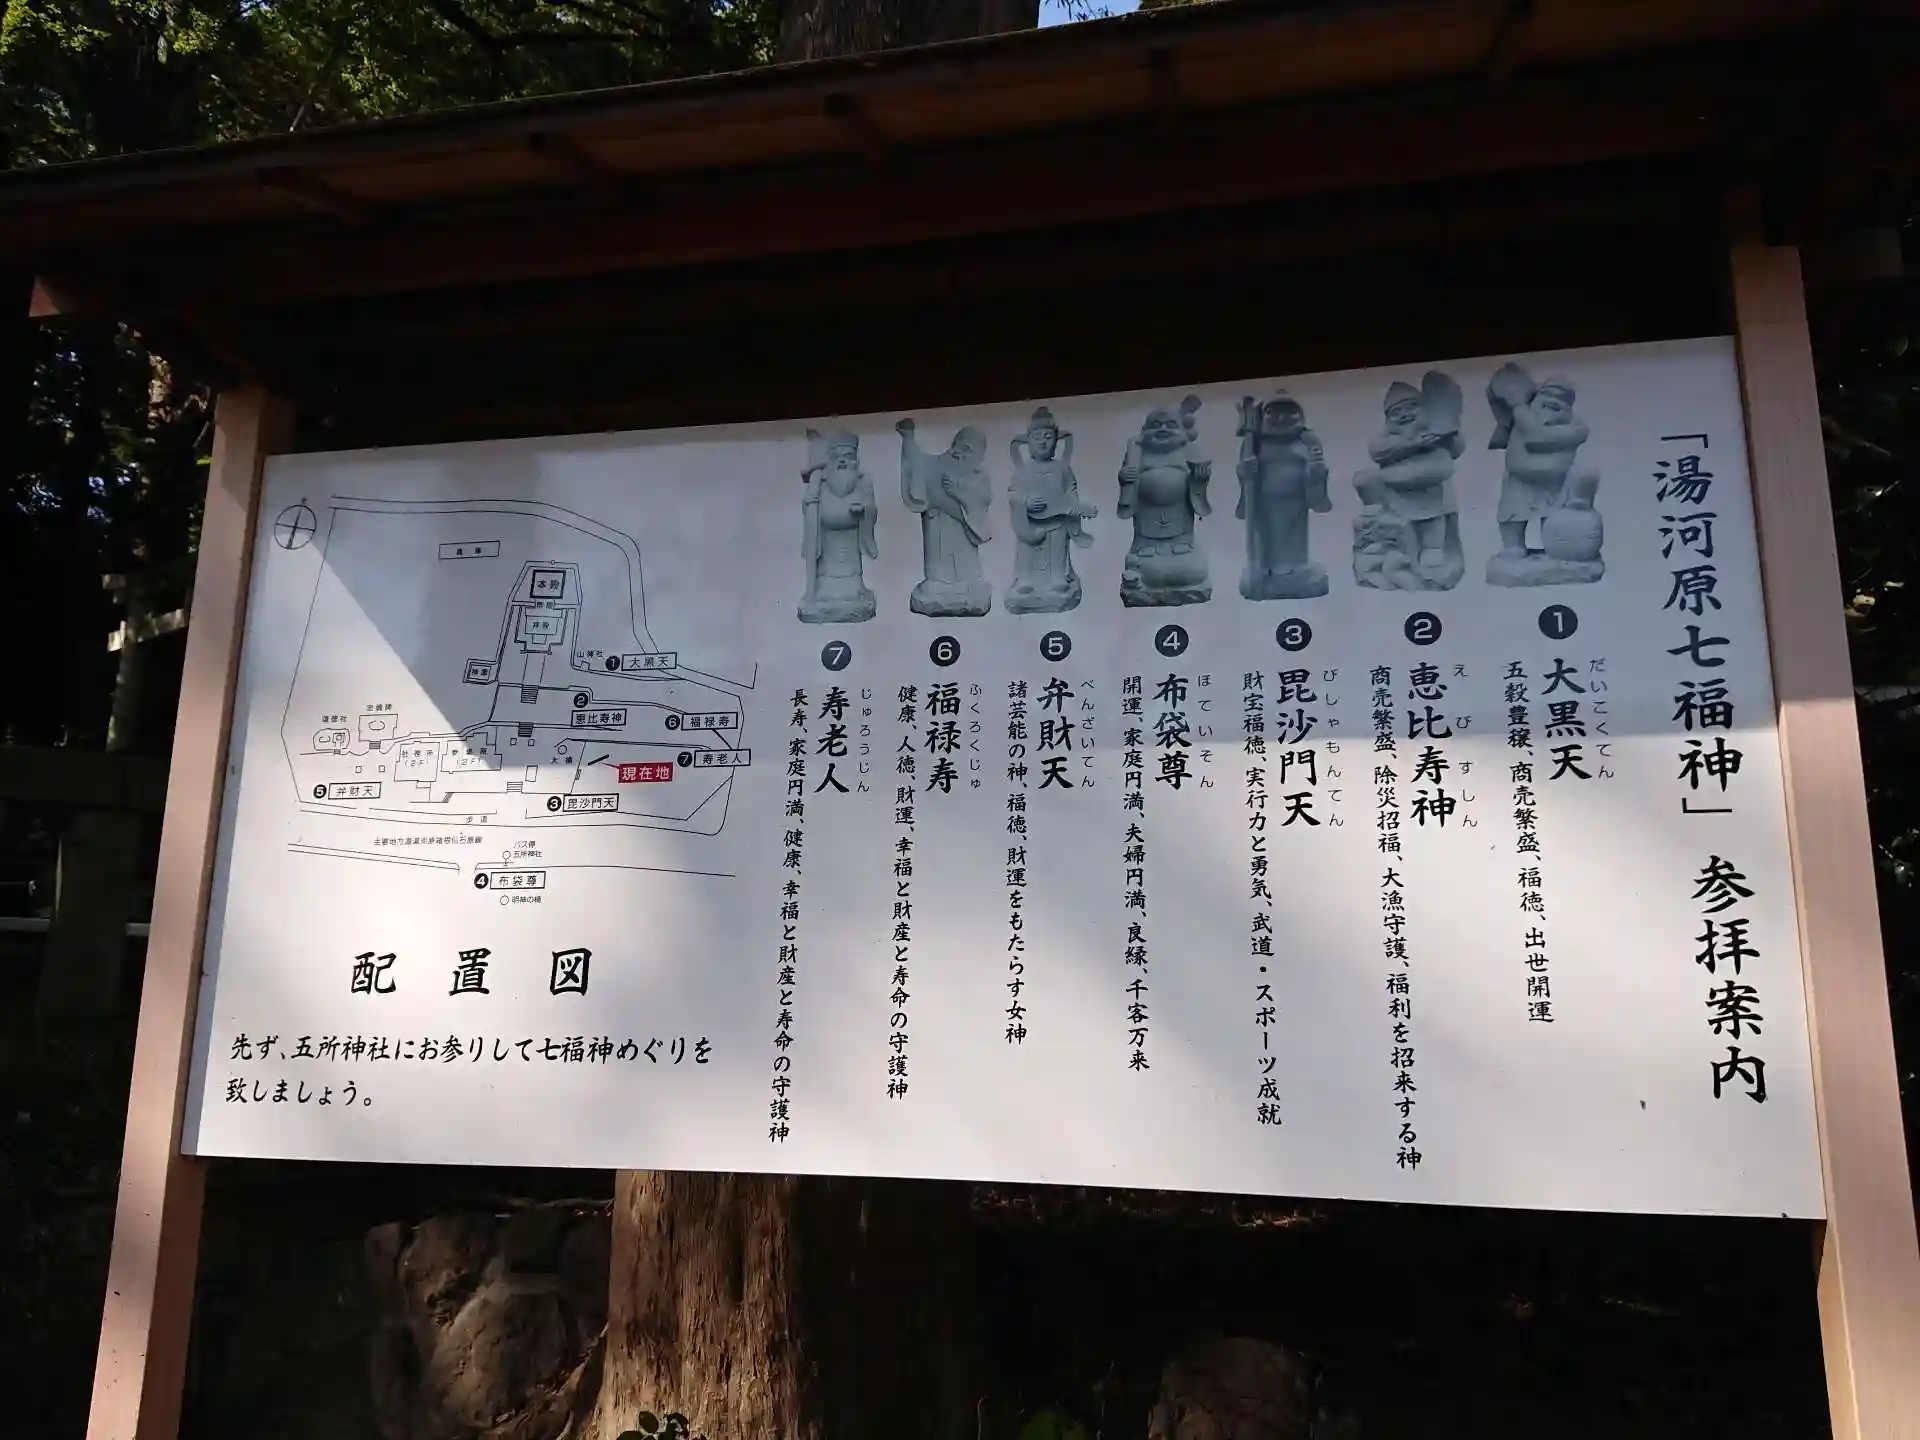 「湯河原七福神」参拝案内
❶大黒天
だいこくてん
五穀豊穣、商売繁盛、福徳、出世開運
❷恵比寿神
えびすしん
商売繁盛、除災招福、大漁守護、福利を招来する神
❸毘沙門天
びしゃもんてん
財宝福徳、実行力と勇気、武道・スポーツ成就
❹布袋尊
ほていそん
開運、家庭円満、夫婦円満、良縁、千客万来
❺弁財天
べんざいてん
諸芸能の神、福徳、財運をもたらす女神
❻福禄寿
ふくろくじゅ
健康、人徳、財運、幸福と財産と寿命の守護神
❼寿老人
じゅろうじん
長寿、家庭円満、健康、幸福と財産と寿命の守護神
本殿
拝殿
山神社
❶大黒天
❷
恵比寿神
❻福禄寿
❼寿老人
現在地
大楠
❸毘沙門天
忠魂碑
社務所
(2F)
参集殿
(2F)
❺弁財天
歩道
主要地方道湯河原箱根仙石原線
バス停
五所神社
❹布袋尊
明神の楠
配置図
先ず、五所神社にお参りして七福神めぐりを
致しましょう。